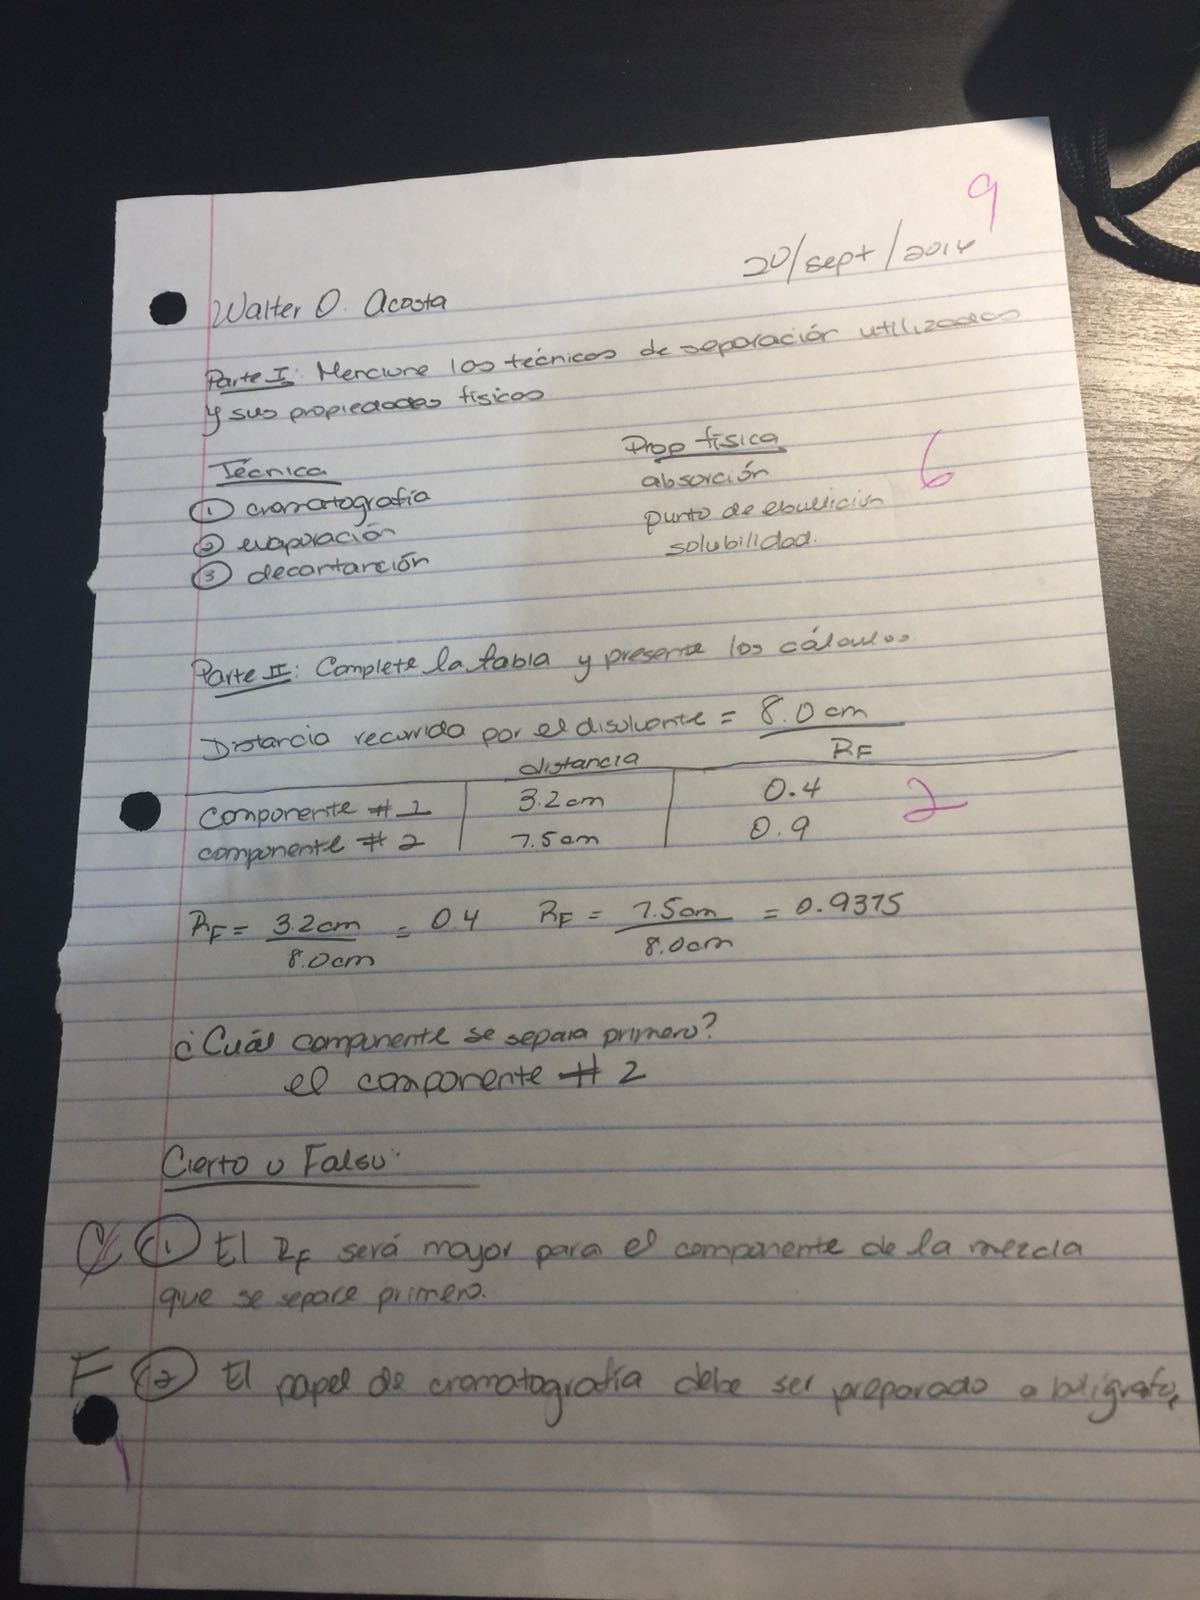 9
20/sept/2016
Walter O. Acosta
Parte I: Mencione las técnicas de separación utilizadas
y sus propiedades físicas
Técnica Prop física
① cromatografía absorción 6
② evaporación punto de ebullición
③ decantación solubilidad.
Parte II: Complete la tabla y presente los cálculos.
Distancia recorrida por el disolvente = 8.0 cm
distancia RF
Componente #1 3.2 cm 0.4 2
componente #2 7.5 cm 0.9
RF = 3.2cm / 8.0cm = 0.4 RF = 7.5cm / 8.0cm = 0.9375
¿Cuál componente se separa primero?
el componente #2
Cierto o Falso:
C ① El RF será mayor para el componente de la mezcla
que se separe primero.
F ② El papel de cromatografía debe ser preparado a bolígrafo,
1